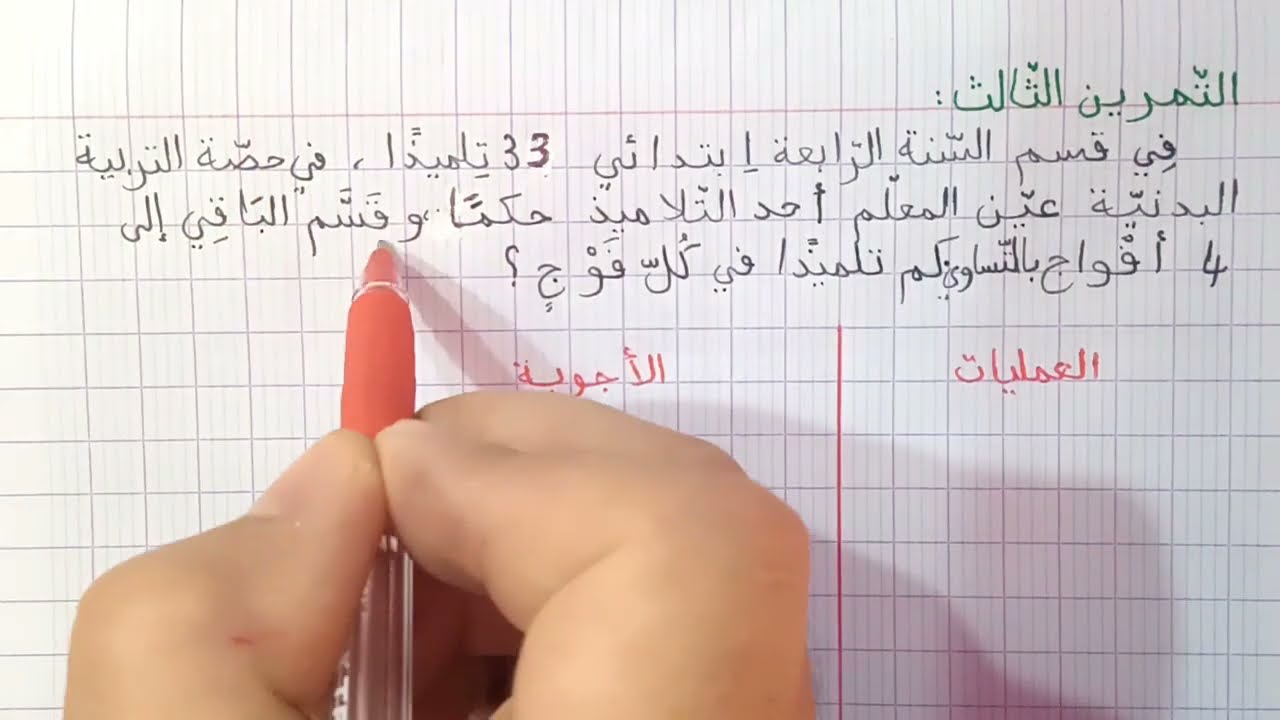 التّمرين الثّالث:
فِي قسم السّنة الرّابعة اِبتدائي 33 تِلميذًا، في حصّة التربية
البدنيّة عيّن المعلّم أحد التّلاميذ حكمًا، وقَسَّم البَاقِي إلى
4 أفْواج بالتّساوي كم تلميذًا في كُلّ فَوْجٍ؟
العمليات
الأجوبة